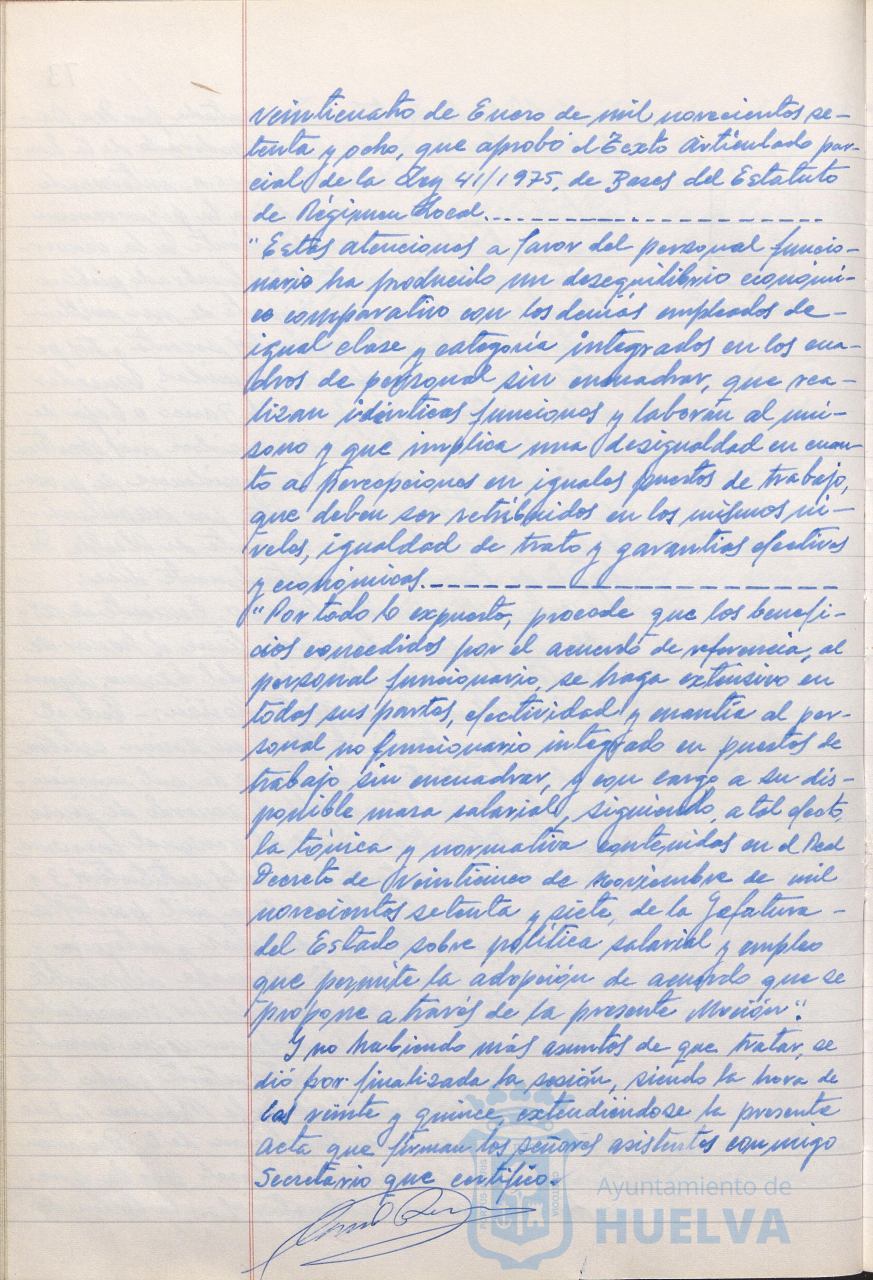 veinticuatro de Enero de mil novecientos se-
tenta y ocho, que aprobó el Texto Articulado par-
cial de la Ley 41/1975, de Bases del Estatuto
de Régimen Local.
"Estas atenciones a favor del personal funcio-
nario ha producido un desequilibrio económi-
co comparativo con los demás empleados de-
igual clase y categoría integrados en los cua-
dros de personal sin encuadrar, que rea-
lizan idénticas funciones y laboran al uní-
sono y que implica una desigualdad en cuan-
to a percepciones en iguales puestos de trabajo,
que deben ser retribuidos en los mismos ni-
veles, igualdad de trato y garantías efectivas
y económicas.
"Por todo lo expuesto, procede que los benefi-
cios concedidos por el acuerdo de referencia, al
personal funcionario, se haga extensivo en
todas sus partes, efectividad y cuantía al per-
sonal no funcionario integrado en puestos de
trabajo sin encuadrar, y con cargo a su dis-
ponible masa salarial, siguiendo, a tal efecto,
la tónica y normativa contenidas en el Real
Decreto de veinticinco de Noviembre de mil
novecientos setenta y siete, de la Jefatura -
del Estado sobre política salarial y empleo
que permite la adopción de acuerdo que se
propone a través de la presente Moción".
Y no habiendo más asuntos de que tratar, se
dió por finalizada la sesión, siendo la hora de
las veinte y quince, extendiéndose la presente
acta que firman los señores asistentes conmigo
Secretario que certifico.
Ayuntamiento de
HUELVA